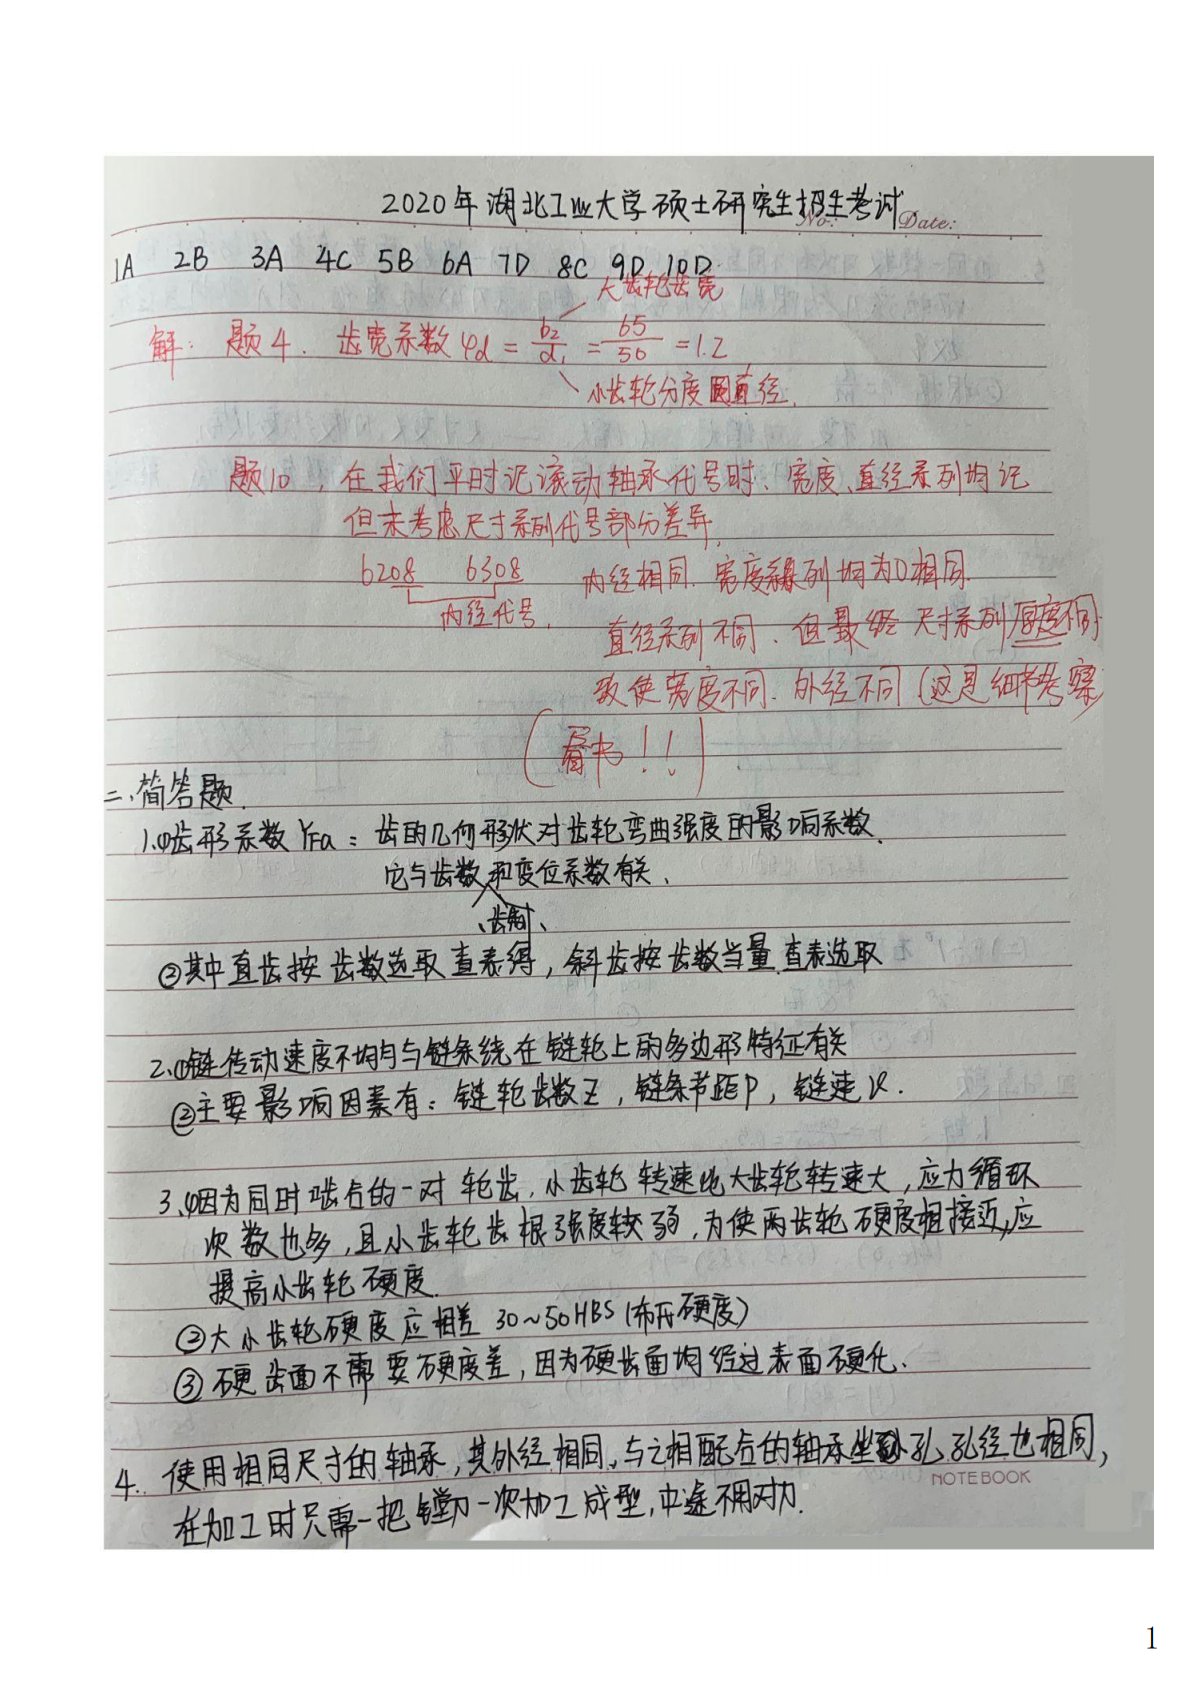 2020年湖北工业大学硕士研究生招生考试
No:
Date:
1A 2B 3A 4C 5B 6A 7D 8C 9D 10D
大齿轮齿宽
解: 题4. 齿宽系数 φd = b2/d1 = 65/50 = 1.2
小齿轮分度圆直径.
题10, 在我们平时记滚动轴承代号时、宽度、直径系列均记
但未考虑尺寸系列代号部分差异,
6208 6308 内径相同. 宽度系列均为0相同.
内径代号.
直径系列不同. 但最终尺寸系列厚度不同
致使宽度不同. 外径不同 (这是细节考察
(看书!!)
二、简答题.
1.①齿形系数 YFa: 齿的几何形状对齿轮弯曲强度的影响系数.
它与齿数和变位系数有关.
、齿制、
②其中直齿按齿数选取查表得, 斜齿按齿数当量查表选取
2.①链传动速度不均匀与链条绕在链轮上的多边形特征有关
②主要影响因素有: 链轮齿数Z, 链条节距P, 链速v.
3.①因为同时啮合的一对轮齿, 小齿轮转速比大齿轮转速大, 应力循环
次数也多, 且小齿轮齿根强度较弱, 为使两齿轮硬度相接近, 应
提高小齿轮硬度.
②大小齿轮硬度应相差 30~50HBS (布氏硬度)
③硬齿面不需要硬度差, 因为硬齿面均经过表面硬化.
4. 使用相同尺寸的轴承, 其外径相同, 与之相配合的轴承坐孔孔径也相同,
NOTEBOOK
在加工时只需一把镗刀一次加工成型, 中途不用对刀.
1